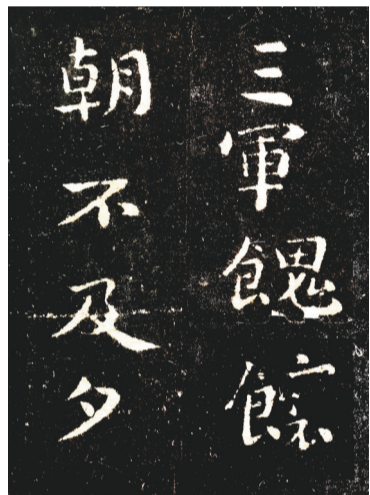 三軍餽饟
朝不及夕